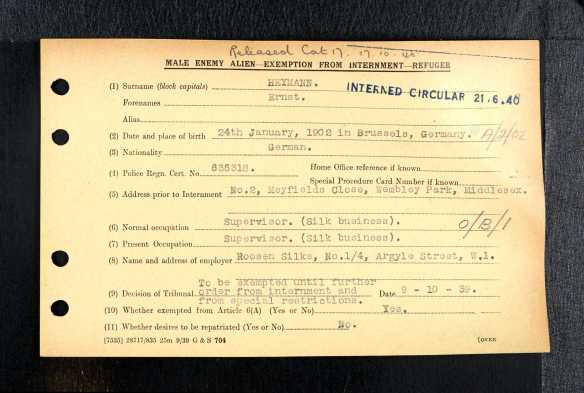 Released Cat 17. 17.10.40
MALE ENEMY ALIEN—EXEMPTION FROM INTERNMENT—REFUGEE
(1) Surname (block capitals) HEYMANN.
INTERNED CIRCULAR 21.6.40
Forenames Ernst.
Alias
(2) Date and place of birth 24th January, 1902 in Brussels, Germany.
(3) Nationality German.
(4) Police Regn. Cert. No. 635318. Home Office reference if known
Special Procedure Card Number if known
(5) Address prior to Internment No.2, Mayfields Close, Wembley Park, Middlesex.
(6) Normal occupation Supervisor. (Silk business).
O/B/1
(7) Present Occupation Supervisor. (Silk business).
(8) Name and address of employer Roosen Silks, No.1/4, Argyle Street, W.1.
To be exempted until further
(9) Decision of Tribunal order from internment and Date 9 - 10 - 39.
from special restrictions.
(10) Whether exempted from Article 6(A) (Yes or No) Yes.
(11) Whether desires to be repatriated (Yes or No) No.
[7535] 28717/835 25m 9/39 G & S 704 (OVER